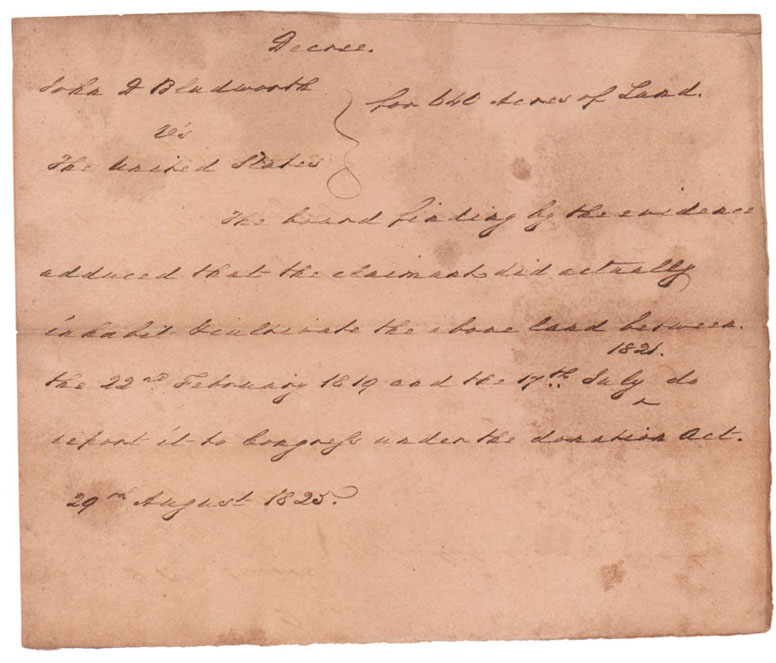 Decree.
John A Bludworth
for 640 Acres of Land.
Vs
The United States
The board finding by the evidence
adduced that the claimant did actually
inhabit & cultivate the above land between
1821.
the 22nd February 1819 and the 17th July do
report it to Congress under the donation Act.
29th August 1825.